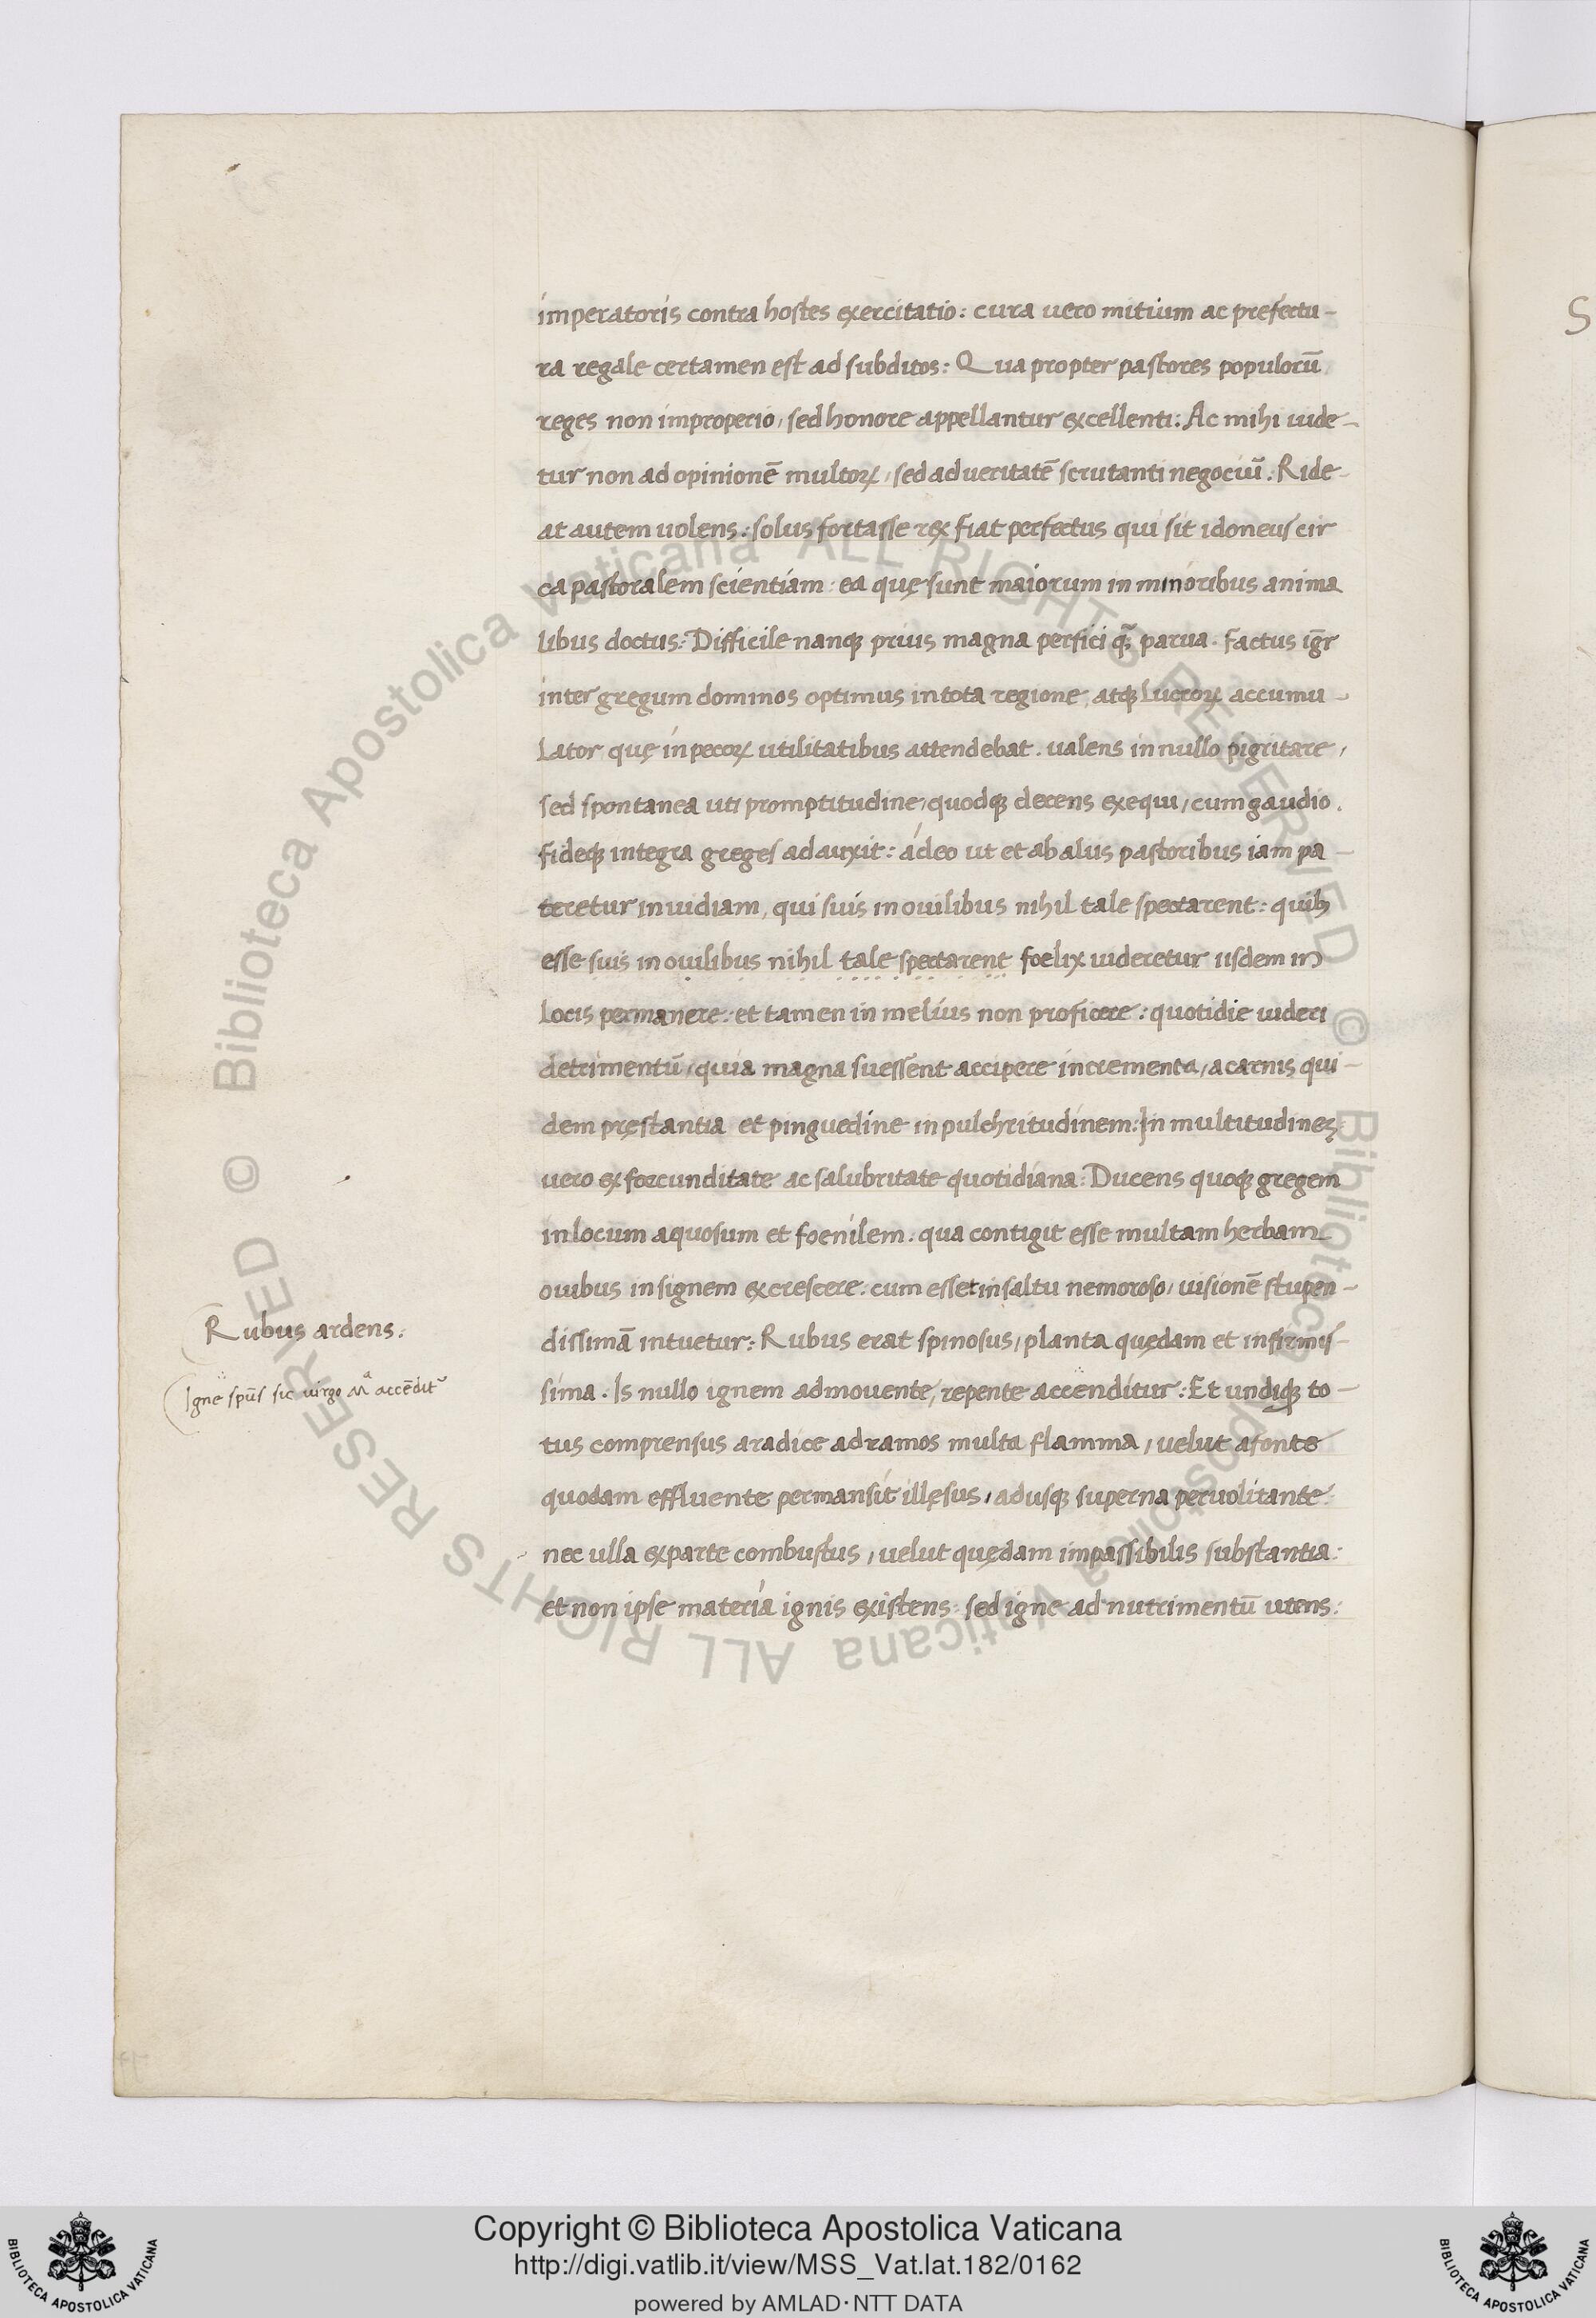 imperatoris contra hostes exercitatio: cura uero mitium ac prefectu-
ra regale certamen est ad subditos: Qua propter pastores populorū
reges non improperio, sed honore appellantur excellenti: Ac mihi uide-
tur non ad opinionē multoꝝ, sed ad ueritatē scrutanti negociū. Ride-
at autem uolens: solus fortasse rex fiat perfectus qui sit idoneus cir
ca pastoralem scientiam: ea quę sunt maiorum in minoribus anima
libus doctus: Difficile nanqꝫ prius magna perfici q̄ꝫ parua. Factus ig̅r
inter gregum dominos optimus in tota regione, atqꝫ lucroꝝ accumu-
lator, quę in pecoꝝ utilitatibus attendebat. ualens in nullo pigritare,
sed spontanea uti promptitudine, quodqꝫ decens exequi, cum gaudio.
fideqꝫ integra greges adauxit: ádeo ut et ab aliis pastoribus iam pa-
teretur inuidiam, qui suis in ouilibus nihil tale spectarent: quibꝫ
esse suis in ouilibus nihil tale spectarent foelix uideretur iisdem in
locis permanere: et tamen in melius non proficere: quotidie uideri
detrimentū, quia magna suessent accipere incrementa, a carnis qui-
dem pręstantia et pinguedine in pulchritudinem: In multitudineꝫ
uero ex foecunditate ac salubritate quotidiana: Ducens quoqꝫ gregem
in locum aquosum et foenilem: qua contigit esse multam herbam
ouibus insignem excrescere: cum esset in saltu nemoroso, uisionē stupen-
dissimā intuetur: Rubus erat spinosus, planta quędam et infirmis-
sima. Is nullo ignem admouente, repente accenditur: Et undiqꝫ to-
tus comprensus a radice ad ramos multa flamma, uelut a fonte
quodam effluente permansit illęsus, adusqꝫ superna peruolitante:
nec ulla ex parte combustus, uelut quędam impassibilis substantia:
et non ipse materia ignis existens: sed igne ad nutrimentū utens:
Rubus ardens:
Igne sp̄us sic uirgo Mᵃ accēdit᷑
S
© Biblioteca Apostolica Vaticana ALL RIGHTS RESERVED © Biblioteca Apostolica Vaticana ALL RIGHTS RESERVED
Copyright © Biblioteca Apostolica Vaticana
http://digi.vatlib.it/view/MSS_Vat.lat.182/0162
powered by AMLAD·NTT DATA
BIBLIOTECA APOSTOLICA VATICANA
BIBLIOTECA APOSTOLICA VATICANA